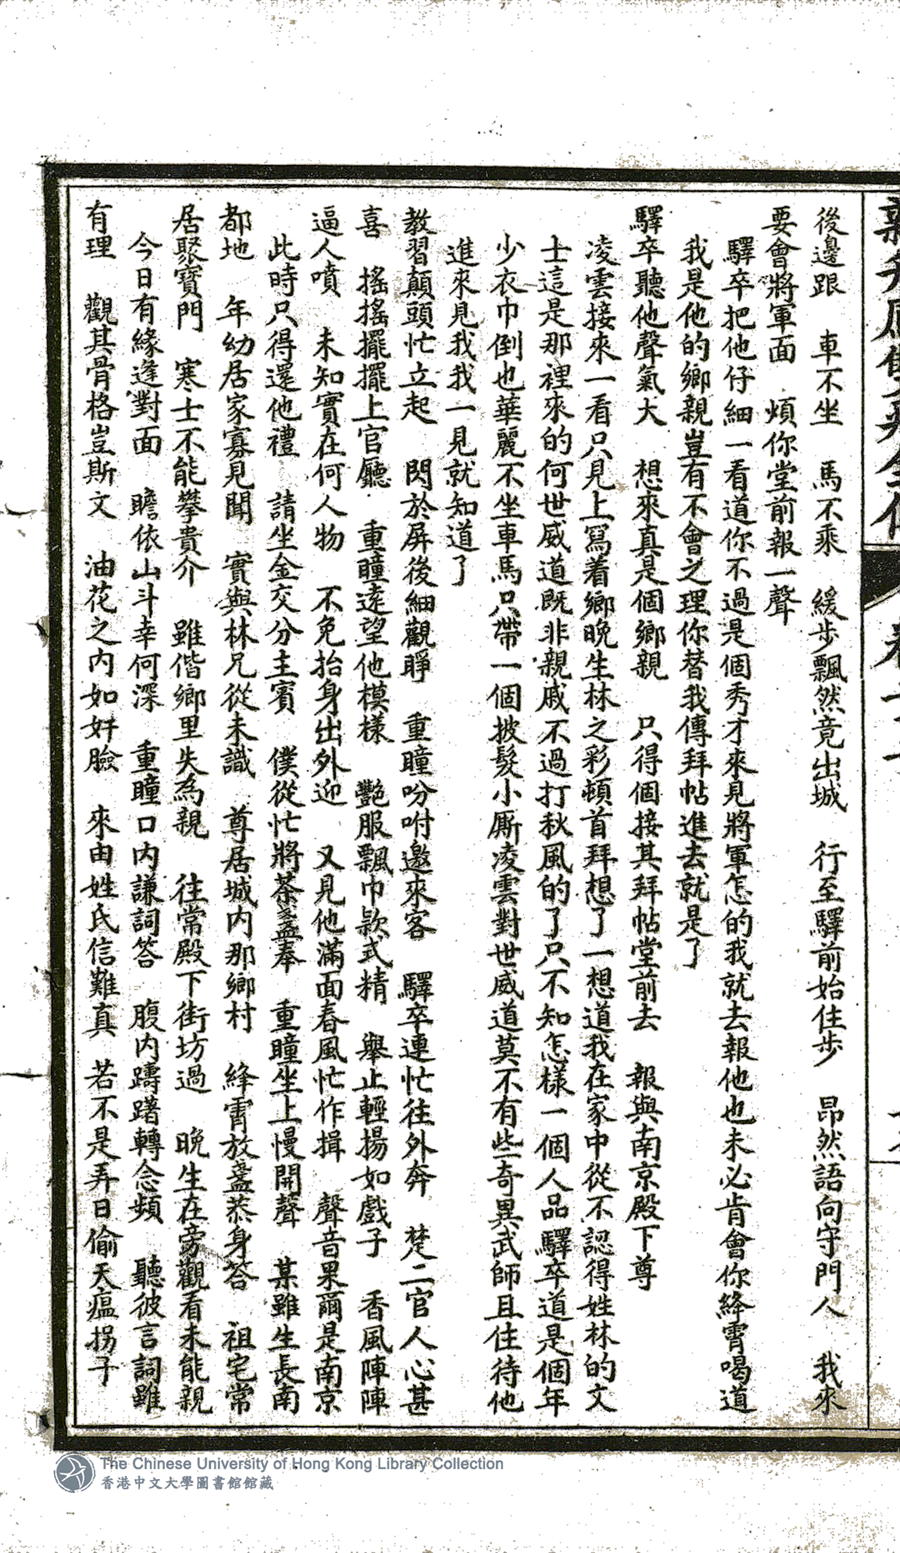 後邊跟　車不坐　馬不乘　緩步飄然竟出城　行至驛前始住步　昂然語向守門人　我來
要會將軍面　煩你堂前報一聲
驛卒把他仔細一看道你不過是個秀才來見將軍怎的我就去報他也未必肯會你絳霄喝道
我是他的鄉親豈有不會之理你替我傳拜帖進去就是了
驛卒聽他聲氣大　想來真是個鄉親　只得個接其拜帖堂前去　報與南京殿下尊
凌雲接來一看只見上寫着鄉晚生林之彩頓首拜想了一想道我在家中從不認得姓林的文
士這是那裡來的何世威道既非親戚不過打秋風的了只不知怎樣一個人品驛卒道是個年
少衣巾倒也華麗不坐車馬只帶一個披髮小厮凌雲對世威道莫不有些奇異武師且住待他
進來見我我一見就知道了
教習顛頭忙立起　閃於屏後細觀睜　重瞳吩咐邀來客　驛卒連忙往外奔　楚二官人心甚
喜　搖搖擺擺上官廳　重瞳遠望他模樣　艷服飄巾款式精　舉止輕揚如戲子　香風陣陣
逼人噴　未知實在何人物　不免抬身出外迎　又見他滿面春風忙作揖　聲音果爾是南京
此時只得還他禮　請坐金交分主賓　僕從忙將茶盞奉　重瞳坐上慢開聲　某雖生長南
都地　年幼居家寡見聞　實與林兄從未識　尊居城内那鄉村　絳霄放盞恭身答　祖宅常
居聚寶門　寒士不能攀貴介　雖偕鄉里失為親　往常殿下街坊過　晚生在旁觀看未能親
今日有緣逢對面　瞻依山斗幸何深　重瞳口内謙詞答　腹内躊躇轉念頻　聽彼言詞雖
有理　觀其骨格豈斯文　油花之内如奸臉　來由姓氏信難真　若不是弄日偷天瘟拐子
The Chinese University of Hong Kong Library Collection
香港中文大學圖書館館藏